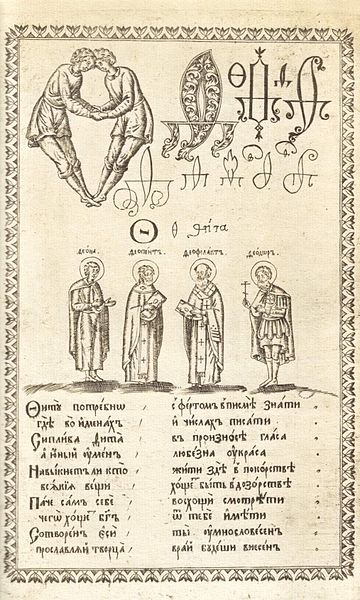 Ѳ ѳ ѳита
ѳеѡна. ѳеофилактъ. ѳеодоръ.
Ѳитꙋ потребнѡ / с фертомъ в писмѣ знати
гдѣ во именахъ / и числахъ писати
Сиплива дита / въ произносѣ гласа
а иный оумѣлъ / любезна оукраса
Навыкнетъ ли кто / жити здѣ в покорствѣ
всякїѧ вещи / хощетъ быть в дозорствѣ
Паче самъ себе / восхощи смотрѣти
чегѡ хощетъ бг҃ъ / ѿ тебе имѣти
Сотворенъ еси / ты оумнословесенъ
прославляй творца / в рай бꙋдеши внесенъ